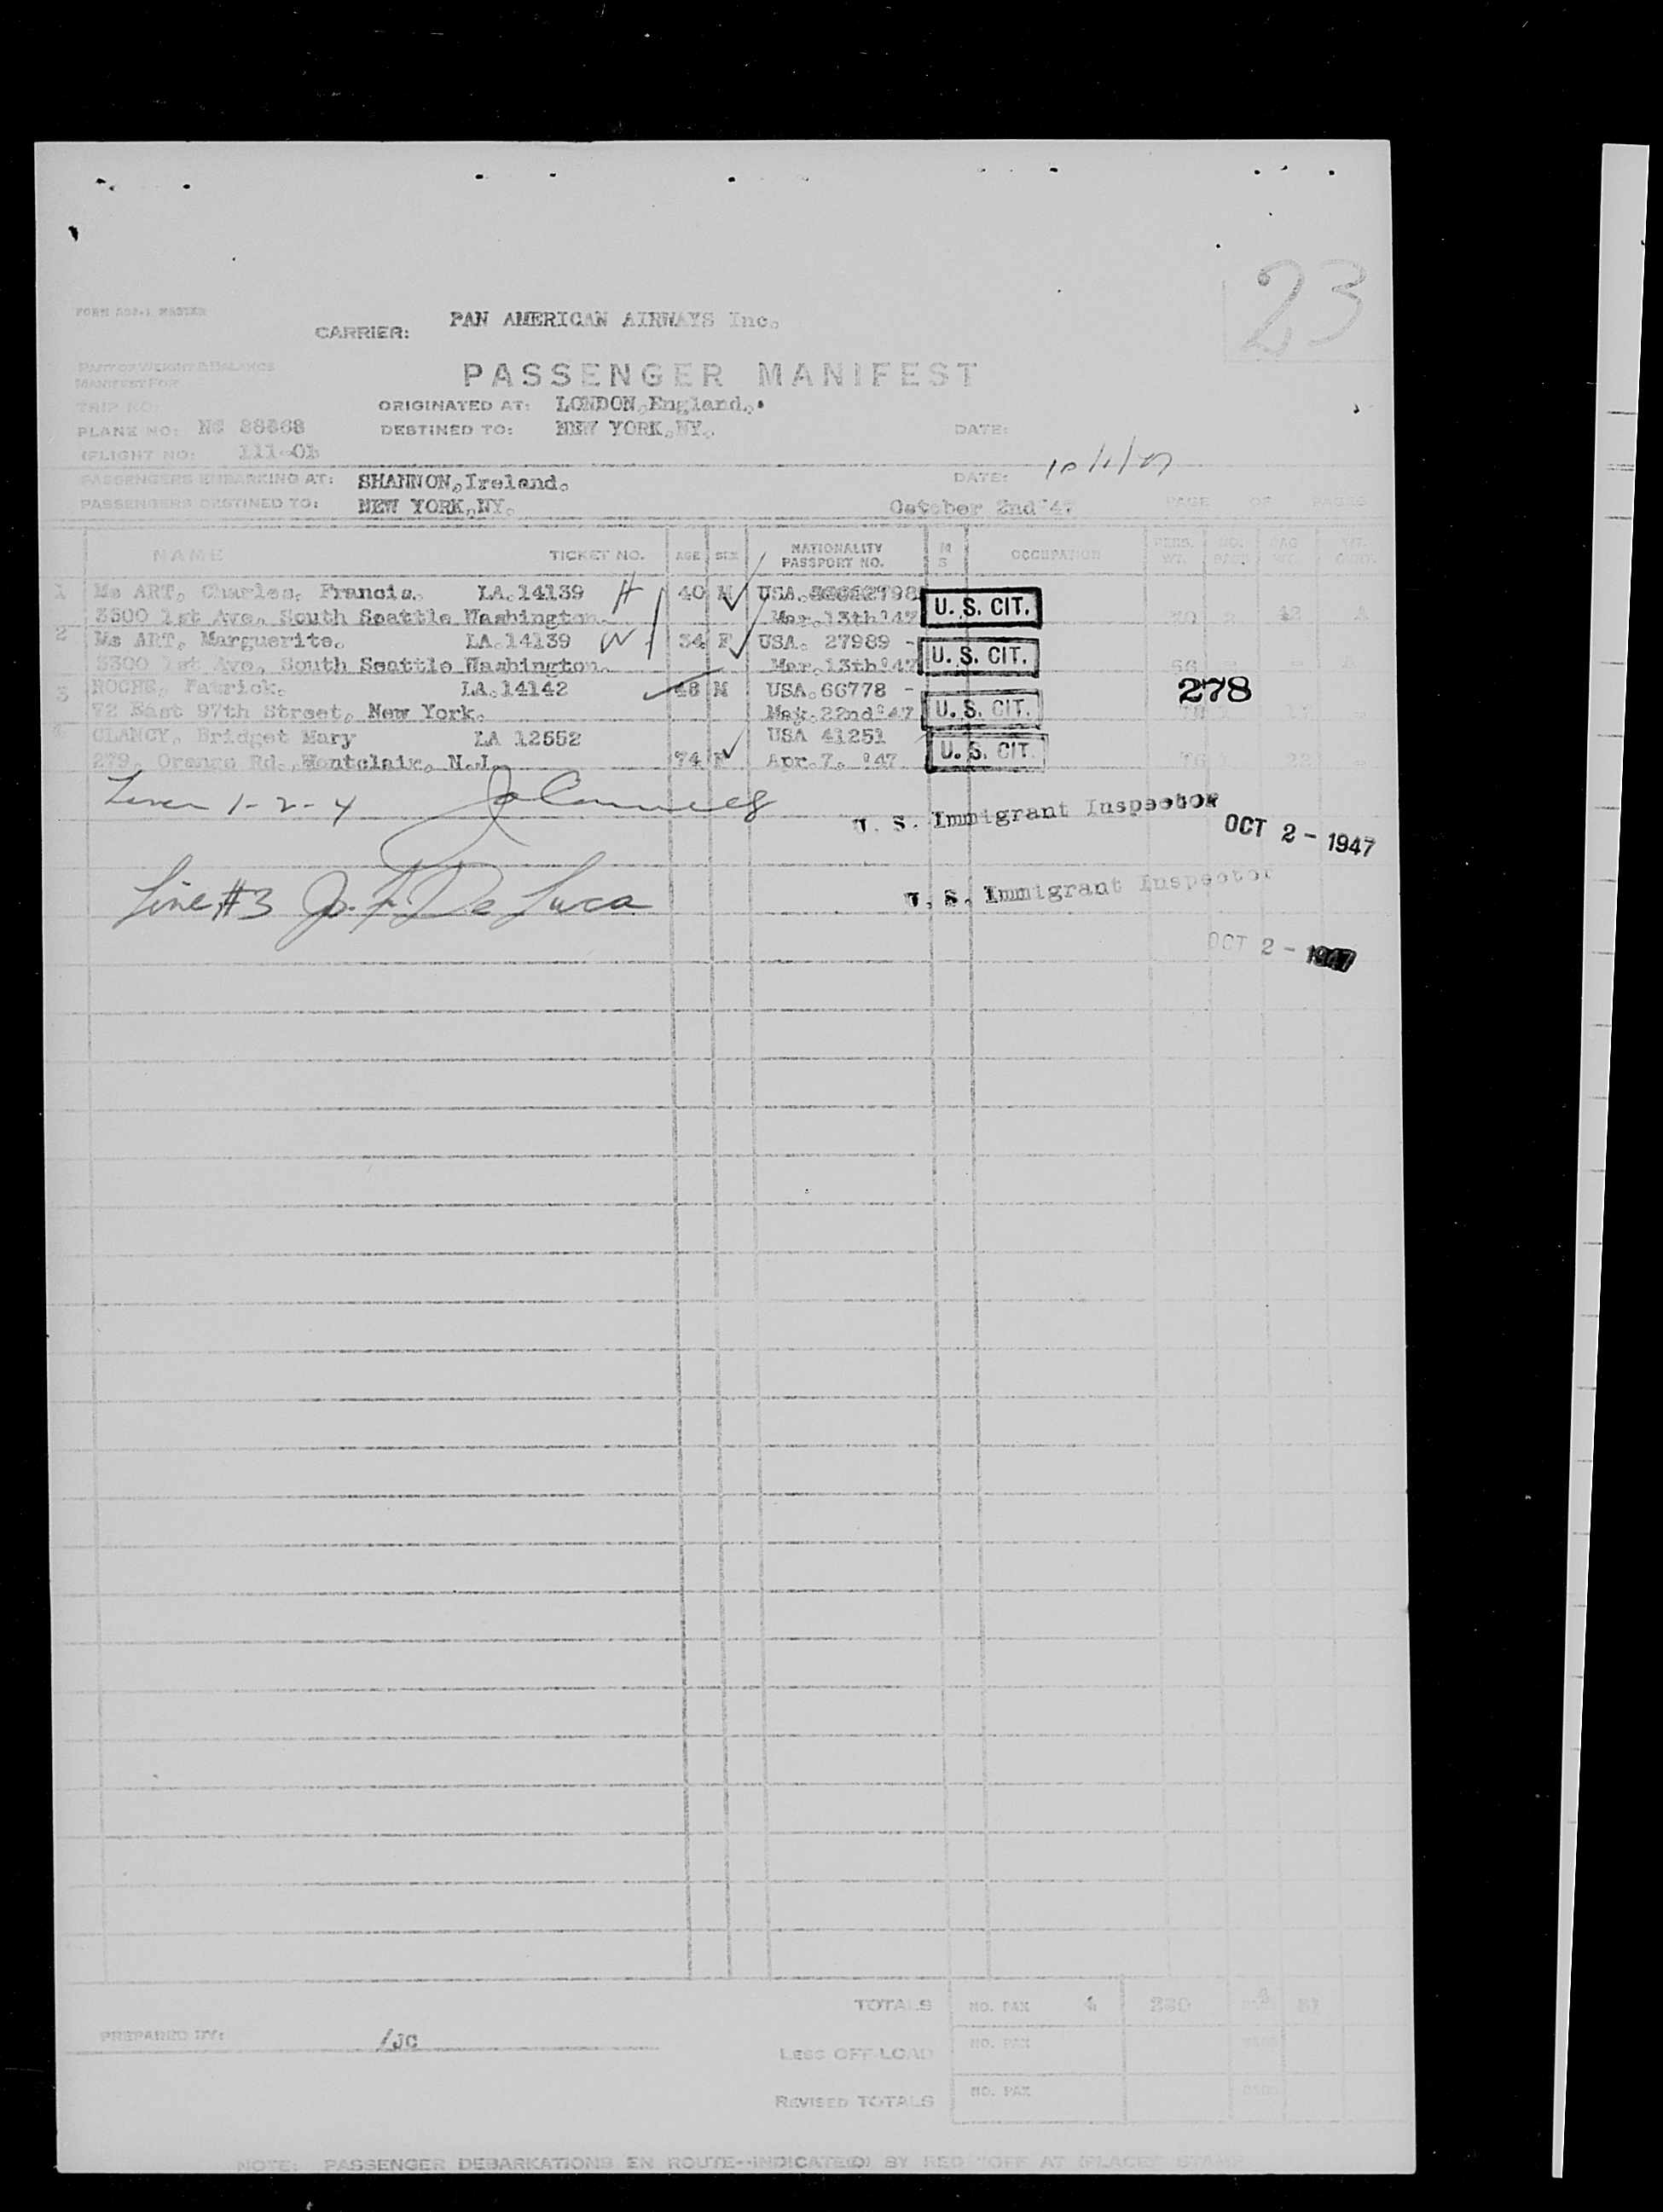 23
FORM MASTER
CARRIER: PAN AMERICAN AIRWAYS Inc.
PART OF WEIGHT & BALANCE
MANIFEST FOR
PASSENGER MANIFEST
TRIP NO:
ORIGINATED AT: LONDON,England.
PLANE NO: NC 88868
DESTINED TO: NEW YORK,NY.
DATE:
FLIGHT NO: 111-01
PASSENGERS EMBARKING AT: SHANNON,Ireland.
DATE: 10/1/47
PASSENGERS DESTINED TO: NEW YORK,NY.
October 2nd'47
PAGE OF PAGES
NAME TICKET NO. AGE SEX NATIONALITY PASSPORT NO. M S OCCUPATION PERS. WT. NO. BAGS BAG WT.
1 Mc ART, Charles, Francis. LA.14139 H 40 M USA. U. S. CIT.
3300 1st Ave, South Seattle Washington. Mar.13th'47
2 Mc ART, Marguerite. LA.14139 W 34 F USA. 27989 - U. S. CIT.
3300 1st Ave, South Seattle Washington. Mar.13th'47 66
3 ROCHE, Patrick. LA.14142 48 M USA.66778 - 278
72 East 97th Street, New York. May.22nd'47 U. S. CIT.
4 CLANCY, Bridget Mary LA 12552 USA 41251
279, Orange Rd.,Montclair, N.J. 74 F Apr.7. '47 U. S. CIT.
1-2-4
U. S. Immigrant Inspector
OCT 2 - 1947
Line #3 J. F. De Luca
U. S. Immigrant Inspector
OCT 2 - 1947
TOTALS NO. PAX 4
PREPARED BY: /JC
LESS OFF LOAD NO. PAX
REVISED TOTALS NO. PAX
NOTE: PASSENGER DEBARKATIONS EN ROUTE--INDICATE(D) BY RED "OFF AT (PLACE)" STAMP